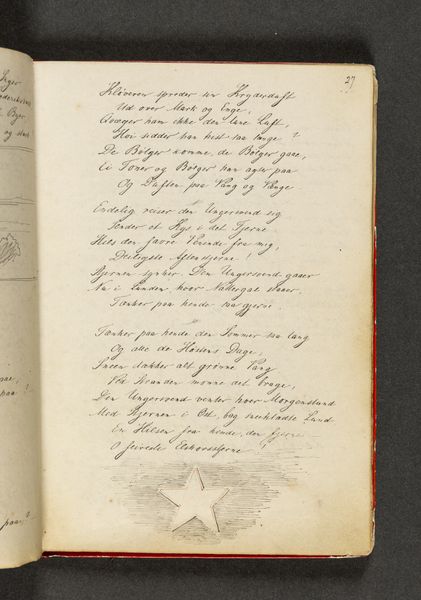 27
Kløveren spreder sin Krydderduft
Ud over Mark og Enge,
Qvæger ham ikke den lune Luft,
Hvi sidder han hist saa længe?
De Bølger komme, de Bølger gaae,
Ei Toner og Bølger han agter paa
Og Duften paa Vang og Vænge
Endelig reiser den Ungersvend sig
Sender et Kys i det Fjerne
Hils den favre Veninde fra mig,
Deiligste Aftenstjerne!
Stjernen synker Den Ungersvend gaaer
Nu i Lunden, hvor Nattergal slaaer.
Tænker paa hende saa gjerne.
Tænker paa hende den Sommer saa lang
Og alle de Høstens Dage,
Sneen dækker alt grønne Vang
Ved Stranden monne det brage,
Den Ungersvend venter hver Morgenstund
Med Stjernen i Øst, bag sneeklædte Lund
En Hilsen fra hende, den fjerne
O Elskovsstjerne!